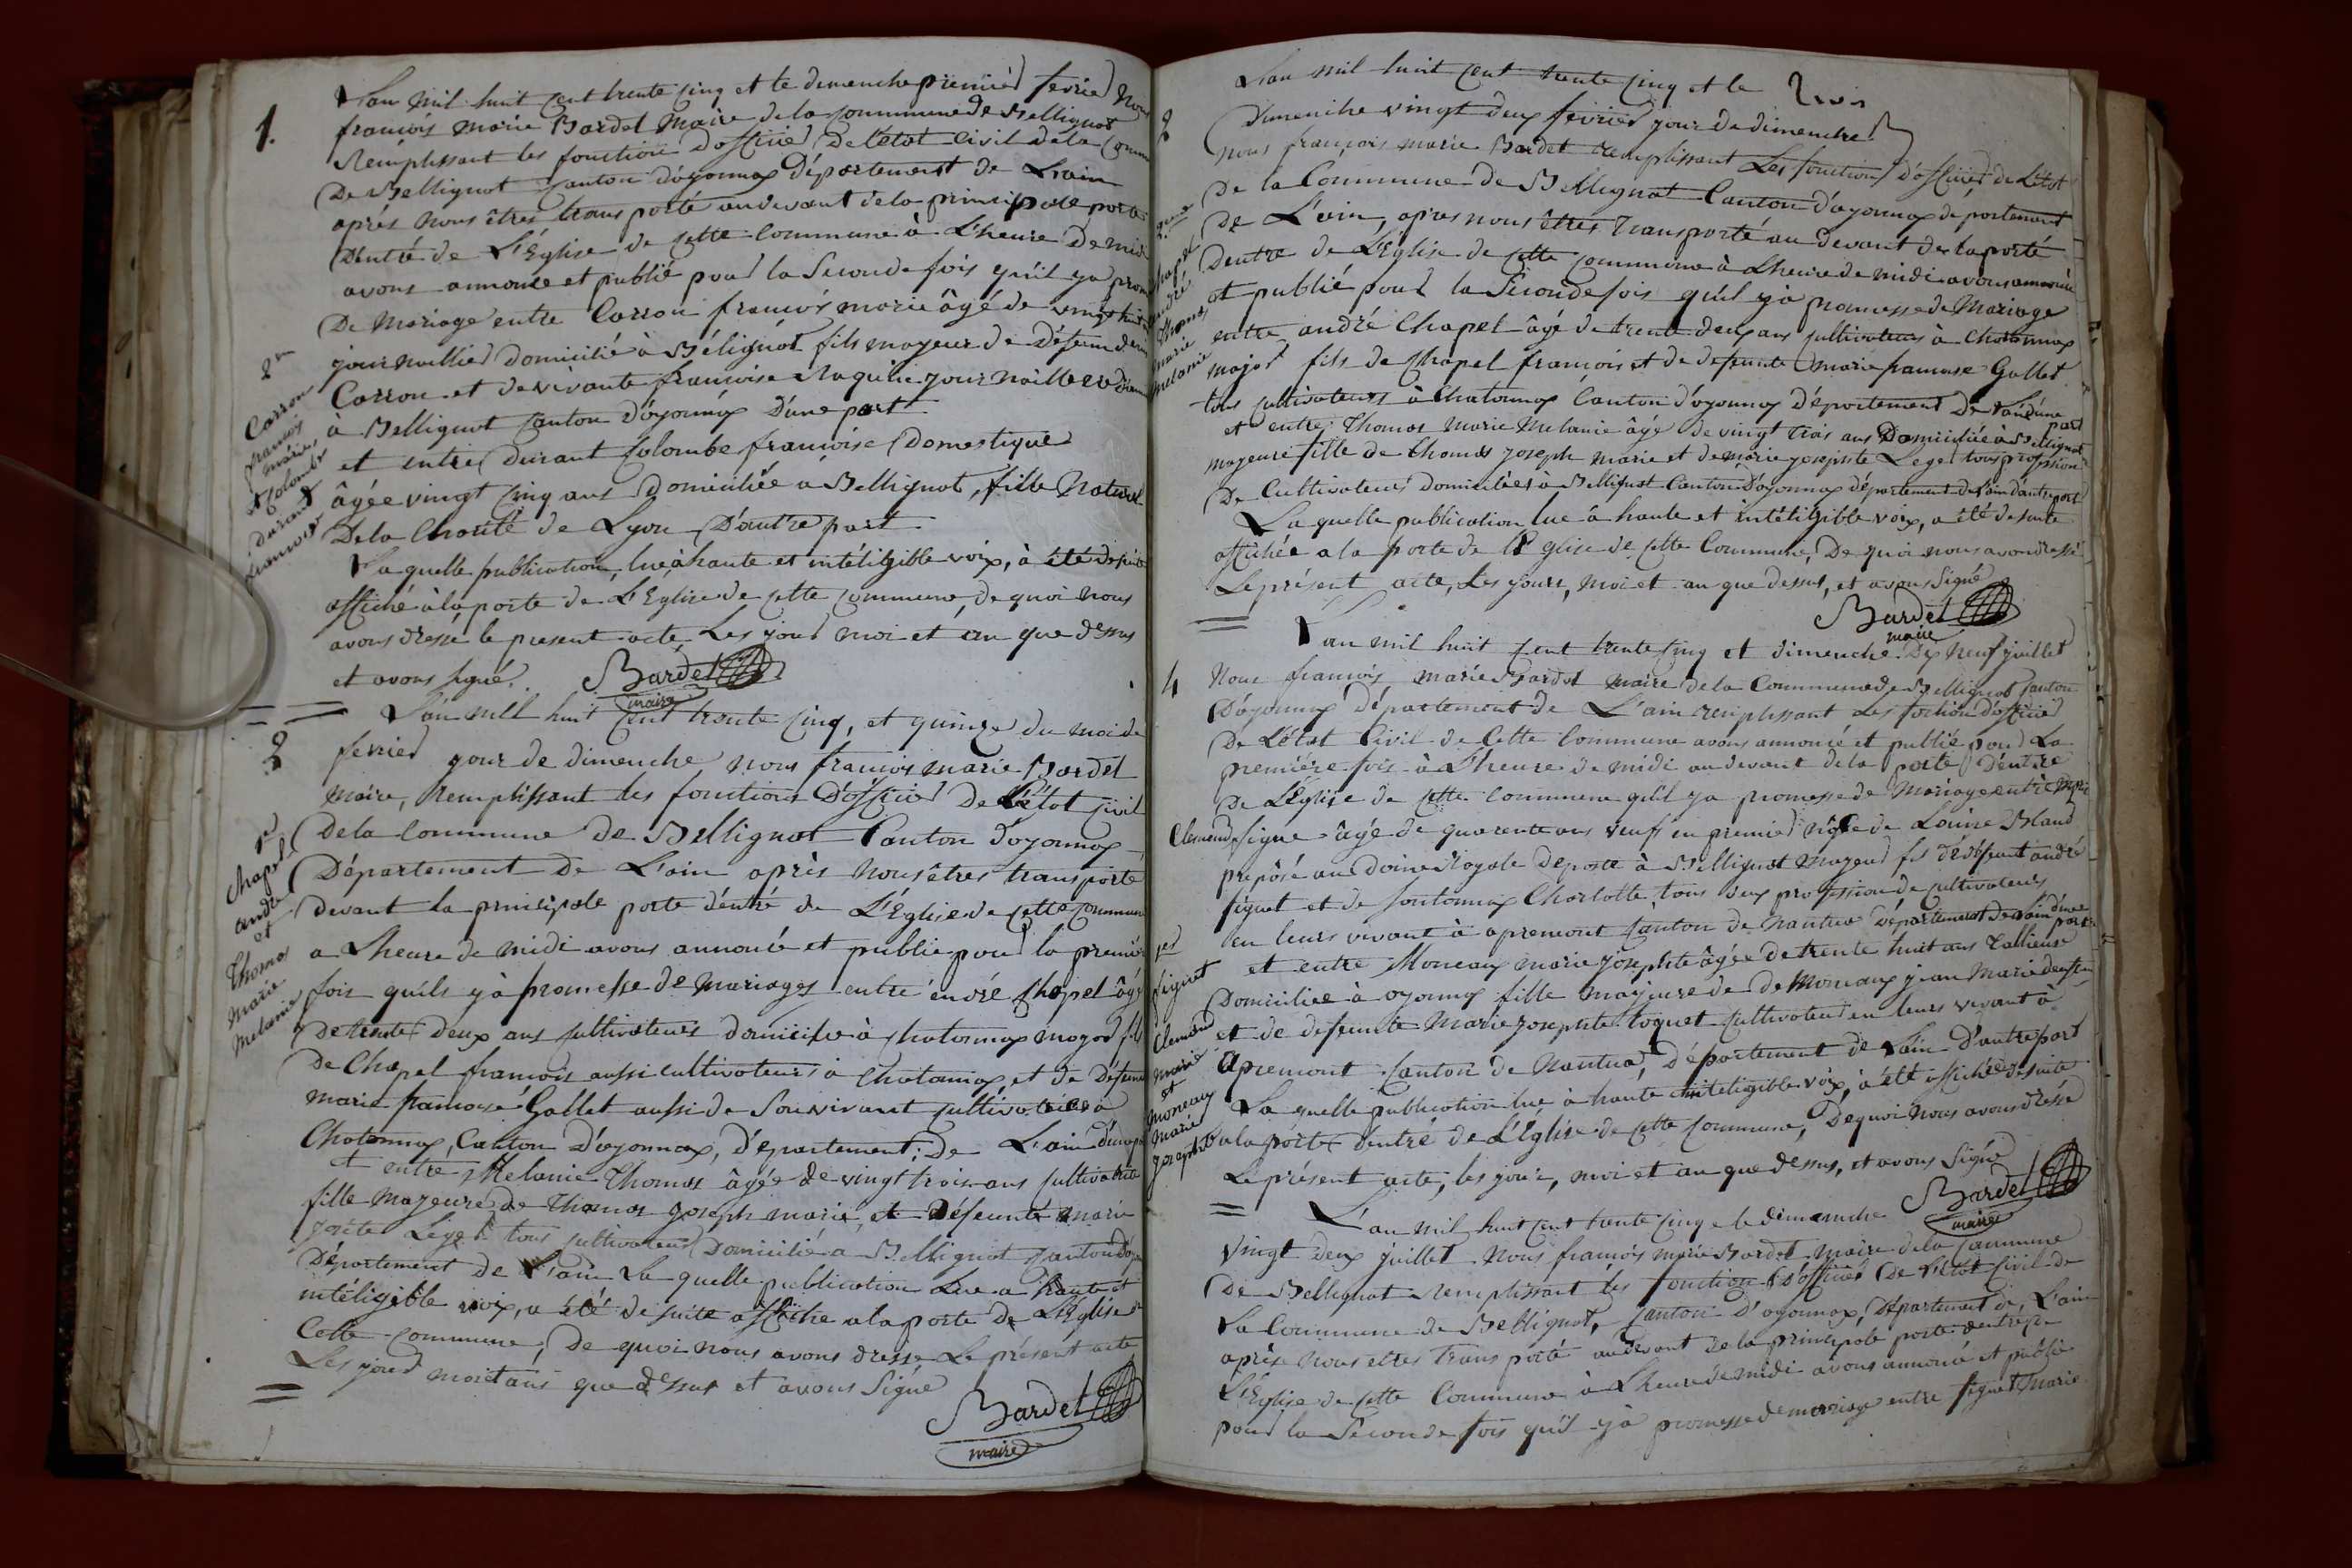 1.
L'an mil huit cent trente cinq et le dimenche premier fevrier Nous
françois marie Bardet Maire de la commune de Bellignat
Remplissant les fonction d'officier De l'état civil de la Comm
De Bellignat Canton d'oyonnax Département de L'ain
après nous êtres transporté audevant de la principale porte
D'entré de L'Eglise de cette commune à L'heure de midi
avons annoncé et publié pour la Seconde fois qu'il ya prom
De Mariage entre Carron françois marie âgé de vingt huit
journallier Domicilié à Bélignat fils mayeur de Défeun
Carron et de vivante françoise journallere
à Bellignat Canton d'oyonnax D'une part
et entre Durant Colombe françoise Domestique
âgée vingt cinq ans Domiciliée a Bellignat, fille Naturel
De la Charité de Lyon D'autre part
La quelle publication, lue à haute et intéligible voix, à été de suite
affiché à la porte de L'Eglise de cette commune, de quoi nous
avons dressé le present acte Les jour moi et an que dessus
et avons signé.
Bardet
maire
2me
Carron
françois
marie
et Colombe
durant
françoise
2
L'an mil huit cent trente cinq, et quinze du moi de
fevrier jour de dimenche nous françois marie Bardet
Maire, Remplissant les fonctions D'officier De L'état civil
De la Commune De Bellignat Canton d'oyonnax
Département De L'ain après Nous êtres transporté
devant la principale porte d'éntré de L'Eglise de cette commune
a L'heure de midi avons annoncé et publie pour la premiér
fois quils yà promesse de Mariages entre endré Chapel âgé
De trente Deux ans cultivateurs domicilie à Chatonnax mayor fils
De Chapel françois aussi cultivateurs à Chatonnax, et de Défeunte
marie francoise Gallet aussi de Son vivant cultivatrice à
Chatonnax, Canton D'oyonnax, Département, De L'ain d'une part
et entre Melanie Thomas âgée de vingt trois ans cultivatrice
fille Mayeure de Thomas Joseph marie et Défeunte marie
Josete Leger tous cultivateurs Domicilié a Bellignat canton d'oy
Département de L'ain La quelle publication Lue a haute et
intéligible voix, a été de suite affiche a la porte de L'Eglise de
Cette commune, De quoi nous avons dressé Le présent acte
Les jour moi et an que dessus et avons Signé
Bardet
maire
1er
Chapel
andré
et
Thomas
Marie
Melanie
L'an mil huit cent trente cinq et le
Dimenche vingt deux fevrier jour de dimenche
3
nous françois marie Bardet remplissant Les fonction d'officier de L'état
De la Commune de Bellignat Canton d'oyonnax departement
De L'ain, apres nous êtres Transporté au devant de la porte
Dentre de L'Eglise de cette commune à L'heure de midi avons annoncé
et publié pour la Seconde fois qu'il yà promesse de Mariage
entre andré Chapel âgé de trente deux ans cultivateurs à Chatonnax
major fils de Chapel françois et de defeunte marie francoise Gallet
tous cultivateurs à Chatonnax Canton d'oyonnax Département De L'ain d'une part
et entre Thomas Marie Melanie âgé de vingt trois ans Domiciliée à Bellignat
mayeure fille de Thomas Joseph Marie et de marie josephte Leger tous profession
De Cultivateurs domiciliés à Bellignat Canton d'oyonnax département de L'ain d'autre part
La quelle publication lue à haute et intéligible voix, a été de suite
affichée a la porte de l'Eglise de cette Commune, De quoi nous avons dressé
Le présent acte, Les jours, moi et an que dessus, et avons Signé
Bardet
maire
2me
Chapel
andré
Thomas
marie
melanie
4
L'an mil huit cent trente cinq et dimenche Dix Neuf juillet
Nous françois marie Bardet maire de la Commune de Bellignat Canton
D'oyonnax département de L'ain remplissant Les fontion d'officier
De L'état Civil de Cette Commune avons annoncé et publié pour La
premiére fois à L'heure de midi au devant de la porte D'entre
De L'Eglise de cette commune qu'il ya promesse de Mariage entre Marie
Clemend Signe âgé de quarente ans veuf en premier de Louise Bland
prepôsé au Royale De poste à Bellignat Mayeur fis de défeunt andré
figuet et de fontonnax Charlotte tous deux profession de cultivateurs
en leurs vivant à apremont Canton de Nantua Département de L'ain d'une part
et entre Moneaux marie josephte âgée de trente huit ans Tallieuse
Domiciliée à oyonnax fille mayeure de de Moneaux jean Marie
et de defeunte Marie Josephte toquet Cultivateur en leurs vivant à
Apremont Canton de Nantua, Département de L'ain D'autre part
La quelle publication lue à haute inteligible voix, à été affichée de suite
à la porte d'entré de L'Eglise de cette Commune, De quoi Nous avons dréssé
Le présent acte, les jour, moi et an que dessus, et avons Signé
Bardet
maire
1er
figuet
Clemend
marie
et
moneaux
marie
josephte
L'an mil huit cent trente cinq le dimanche
vingt deux juillet Nous françois marie Bardet maire de la Commune
De Bellignat remplissant les fonction D'officier De L'état Civil de
La Commune de Bellignat, Canton D'oyonnax, Département de, L'ain
après nous etres Trans porté audevant de la principale porte dentrée de
L'Eglise de cette Commune à L'heure de midi avons annoncé et publié
pour la Seconde fois qu'il yà promesse de mariage entre figuet Marie